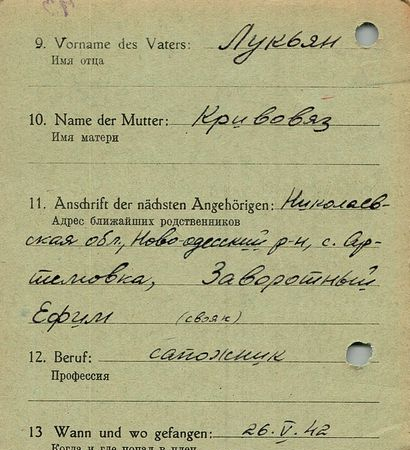 9. Vorname des Vaters: Лукьян
Имя отца
10. Name der Mutter: Кривовяз
Имя матери
11. Anschrift der nächsten Angehörigen: Николаев-
Адрес ближайших родственников
ская обл, Ново-одесский р-н, с. Ар-
темовка, Заворотный
Ефим (свояк)
12. Beruf: сапожник
Профессия
13 Wann und wo gefangen: 26.V.42
Когда и где попал в плен